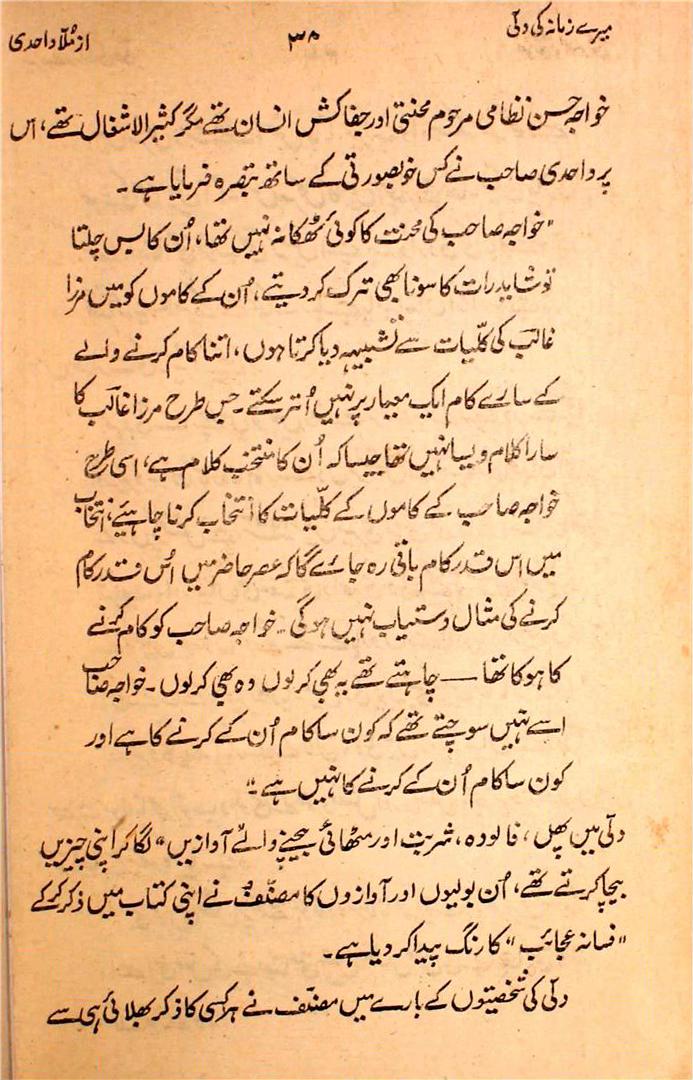 میرے زمانہ کی دلّی
۳۰
از مُلّا واحدی
خواجہ حسن نظامی مرحوم محنتی اور جفاکش انسان تھے مگر کثیر الاشغال تھے، اس
پر واحدی صاحب نے کس خوبصورتی کے ساتھ تبصرہ فرمایا ہے۔
"خواجہ صاحب کی محنت کا کوئی ٹھکانہ نہیں تھا، اُن کا بس چلتا
تو شاید رات کا سونا بھی ترک کر دیتے، اُن کے کاموں کو میں مرزا
غالب کی کلّیات سے تشبیہہ دیا کرتا ہوں، اتنا کام کرنے والے
کے سارے کام ایک معیار پر نہیں اُتر سکتے۔ جس طرح مرزا غالب کا
سارا کلام ویسا نہیں تھا جیسا کہ اُن کا منتخب کلام ہے، اسی طرح
خواجہ صاحب کے کاموں کے کلّیات کا انتخاب کرنا چاہیئے، انتخاب
میں اس قدر کام باقی رہ جائے گا کہ عصر حاضر میں اُس قدر کام
کرنے کی مثال دستیاب نہیں ہوگی۔ خواجہ صاحب کو کام کرنے
کا ہوکا تھا — چاہتے تھے یہ بھی کرلوں وہ بھی کرلوں۔ خواجہ صاحب
اسے نہیں سوچتے تھے کہ کون سا کام اُن کے کرنے کا ہے اور
کون سا کام اُن کے کرنے کا نہیں ہے۔"
دلّی میں پھل، فالودہ، شربت اور مٹھائی بیچنے والے آوازیں" لگا کر اپنی چیزیں
بیچا کرتے تھے، اُن بولیوں اور آوازوں کا مصنّف نے اپنی کتاب میں ذکر کرکے
"فسانہ عجائب" کا رنگ پیدا کر دیا ہے۔
دلّی کی شخصیتوں کے بارے میں مصنّف نے ہر کسی کا ذکر بھلائی ہی سے